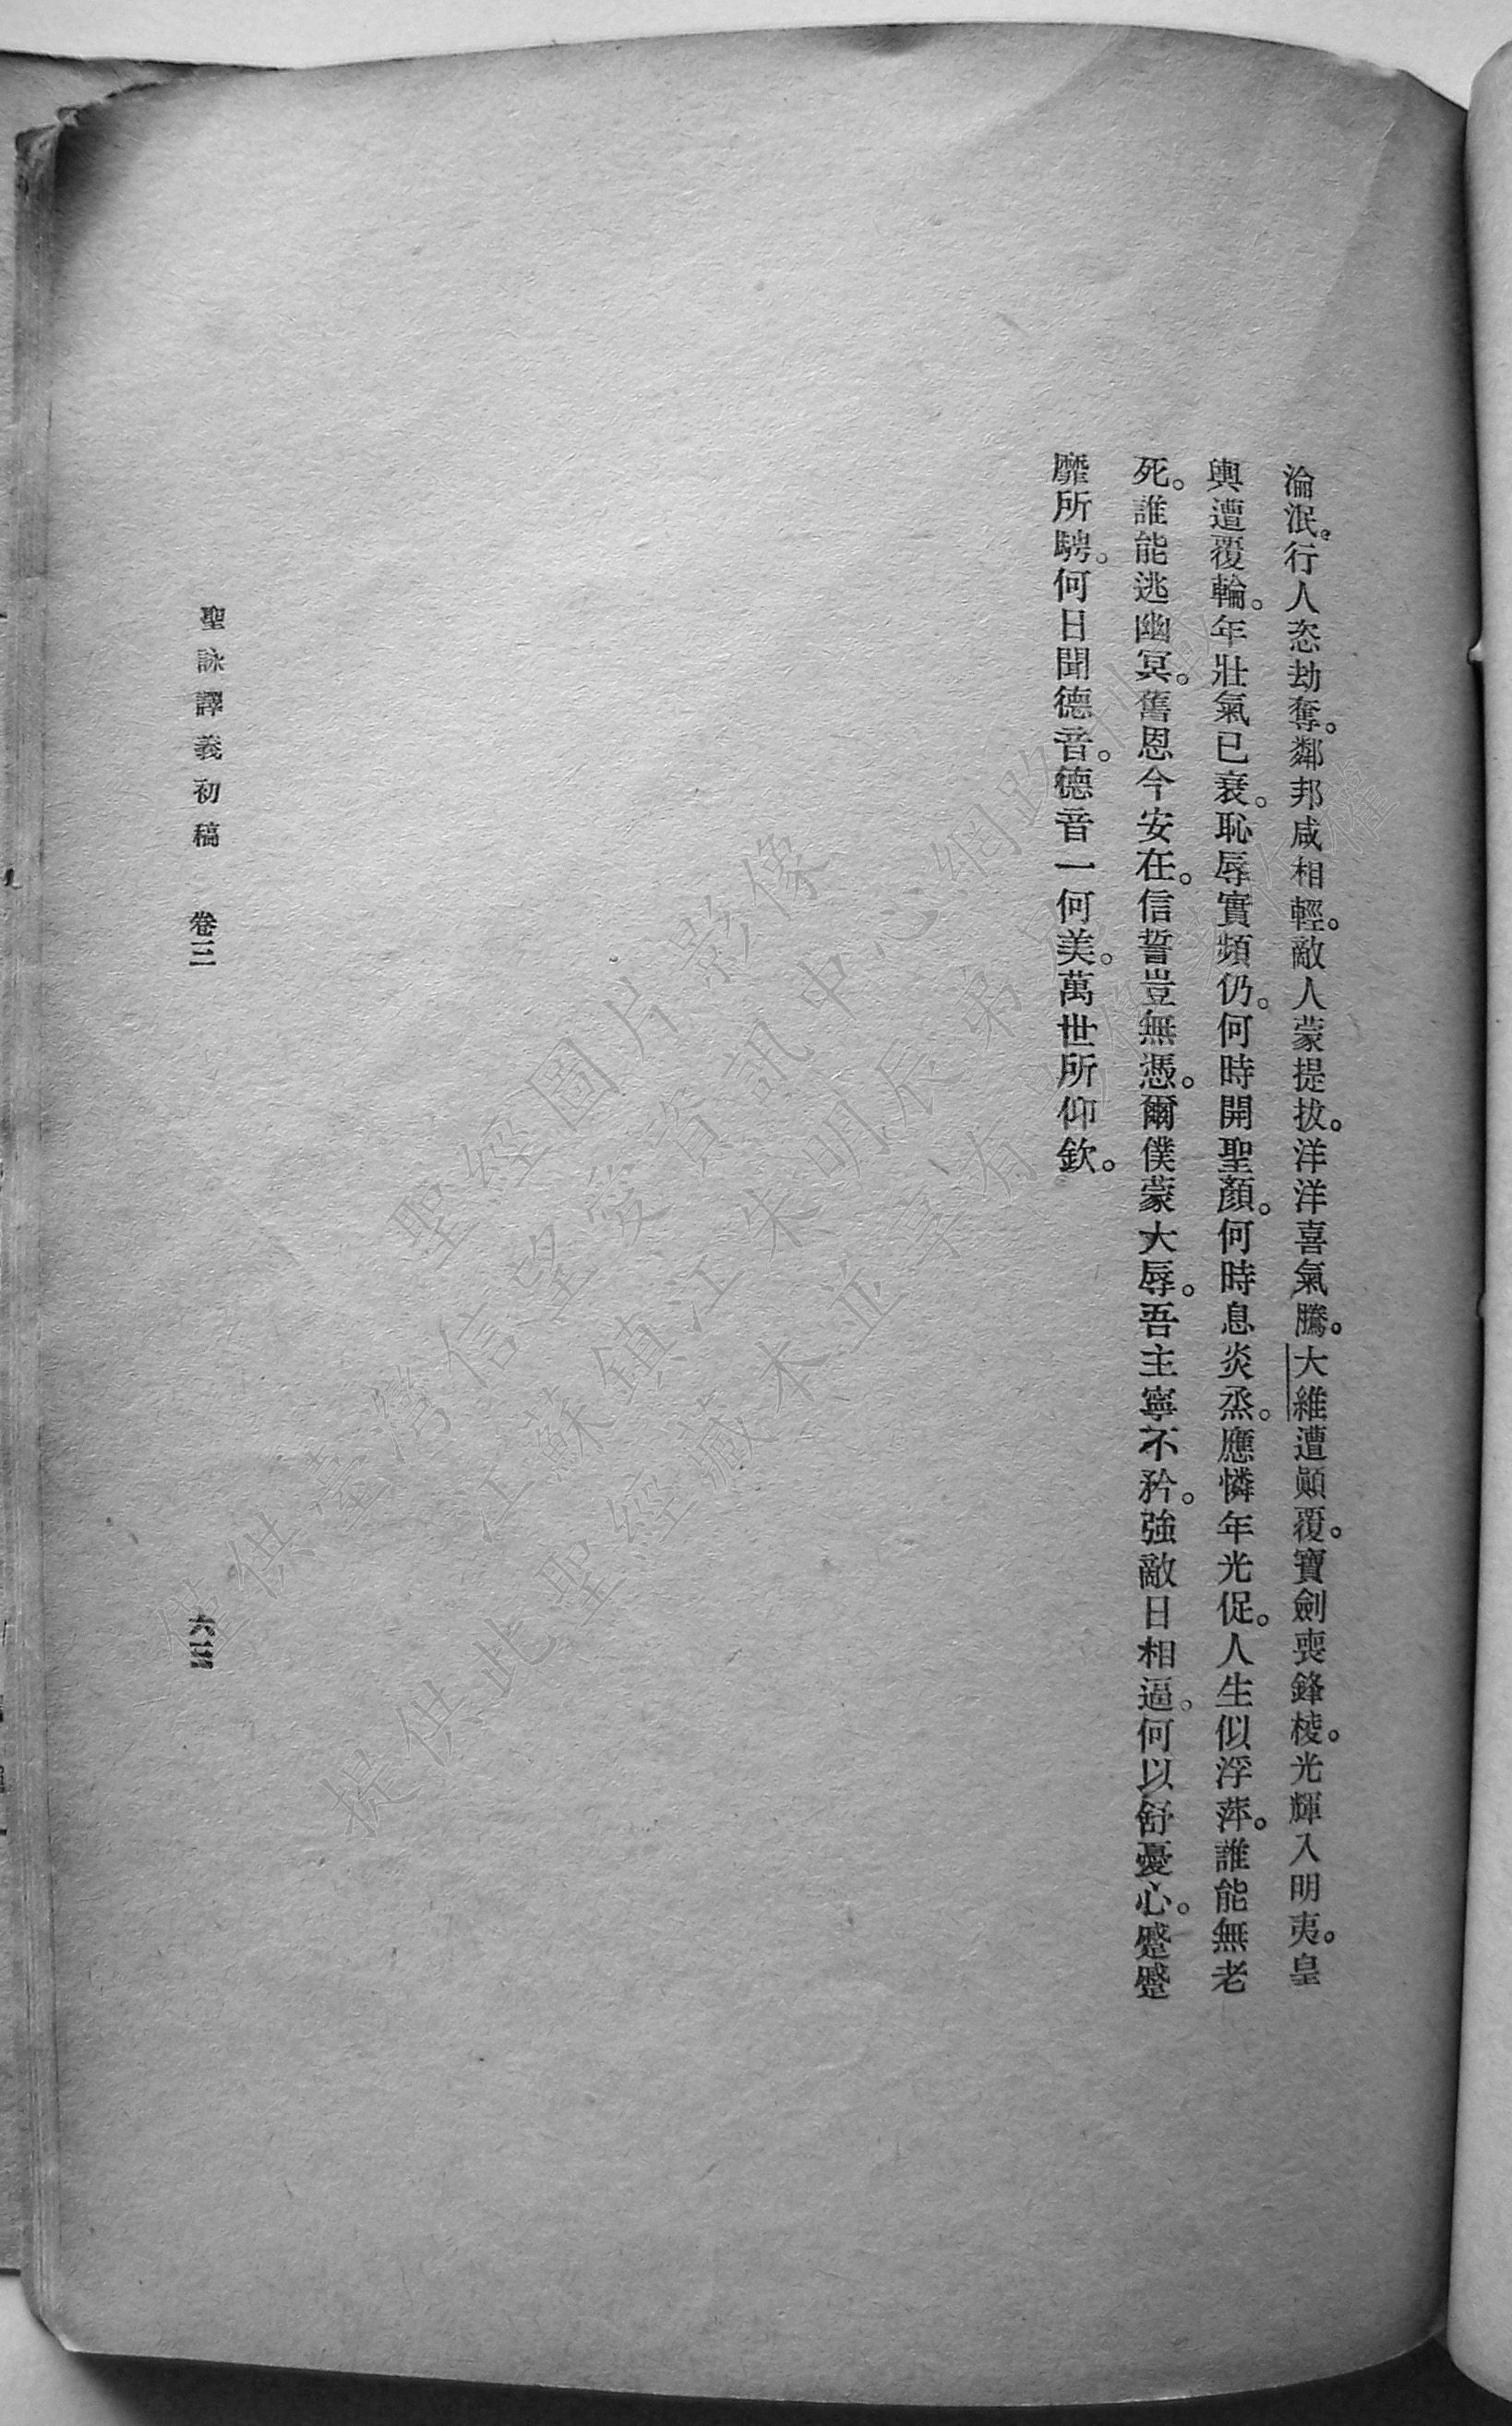 淪泯。行人恣劫奪。鄰邦咸相輕。敵人蒙提拔。洋洋喜氣騰。大維遭顚覆。寶劍喪鋒棱。光輝入明夷。皇
輿遭覆輪。年壯氣已衰。恥辱實頻仍。何時開聖顏。何時息炎烝。應憐年光促。人生似浮萍。誰能無老
死。誰能逃幽冥。舊恩今安在。信誓豈無憑。爾僕蒙大辱。吾主寧不矜。強敵日相逼。何以舒憂心。蹙蹙
靡所騁。何日聞德音。德音一何美。萬世所仰欽。
聖詠譯義初稿 卷三
六三
聖經圖片影像
僅供臺灣信望愛資訊中心網路
江蘇鎮江朱明辰弟
提供此聖經藏本並享有